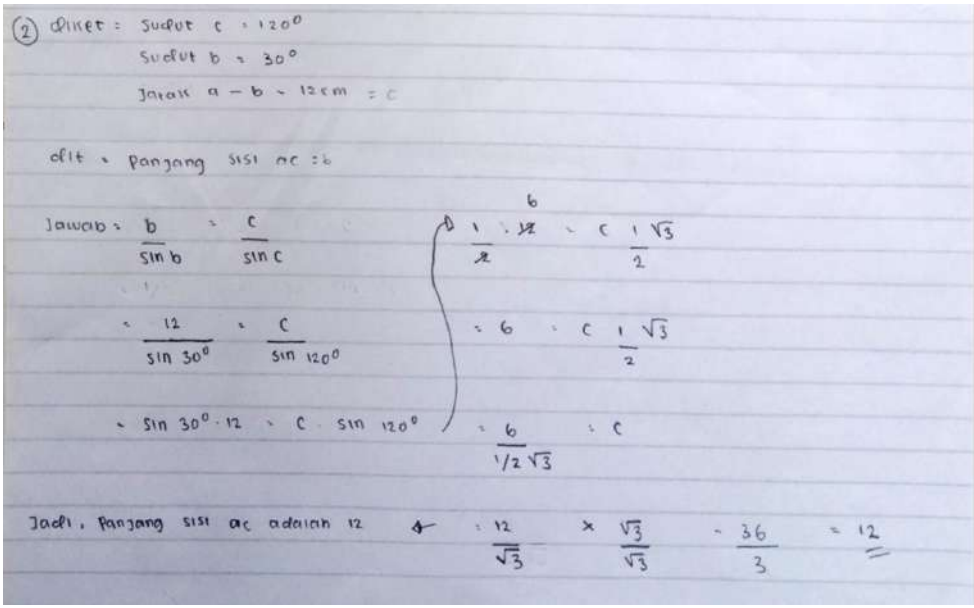 2 Diket : Sudut c = 120°
Sudut b = 30°
Jarak a - b = 12 cm = c
dit = Panjang sisi ac = b
Jawab = b/sin b = c/sin c
= 12/sin 30° = c/sin 120°
= sin 30° . 12 = c . sin 120°
1/2 . 12 6 = c 1/2 √3
= 6 = c 1/2 √3
= 6/(1/2 √3) = c
= 12/√3 × √3/√3 = 36/3 = 12
Jadi, Panjang sisi ac adalah 12